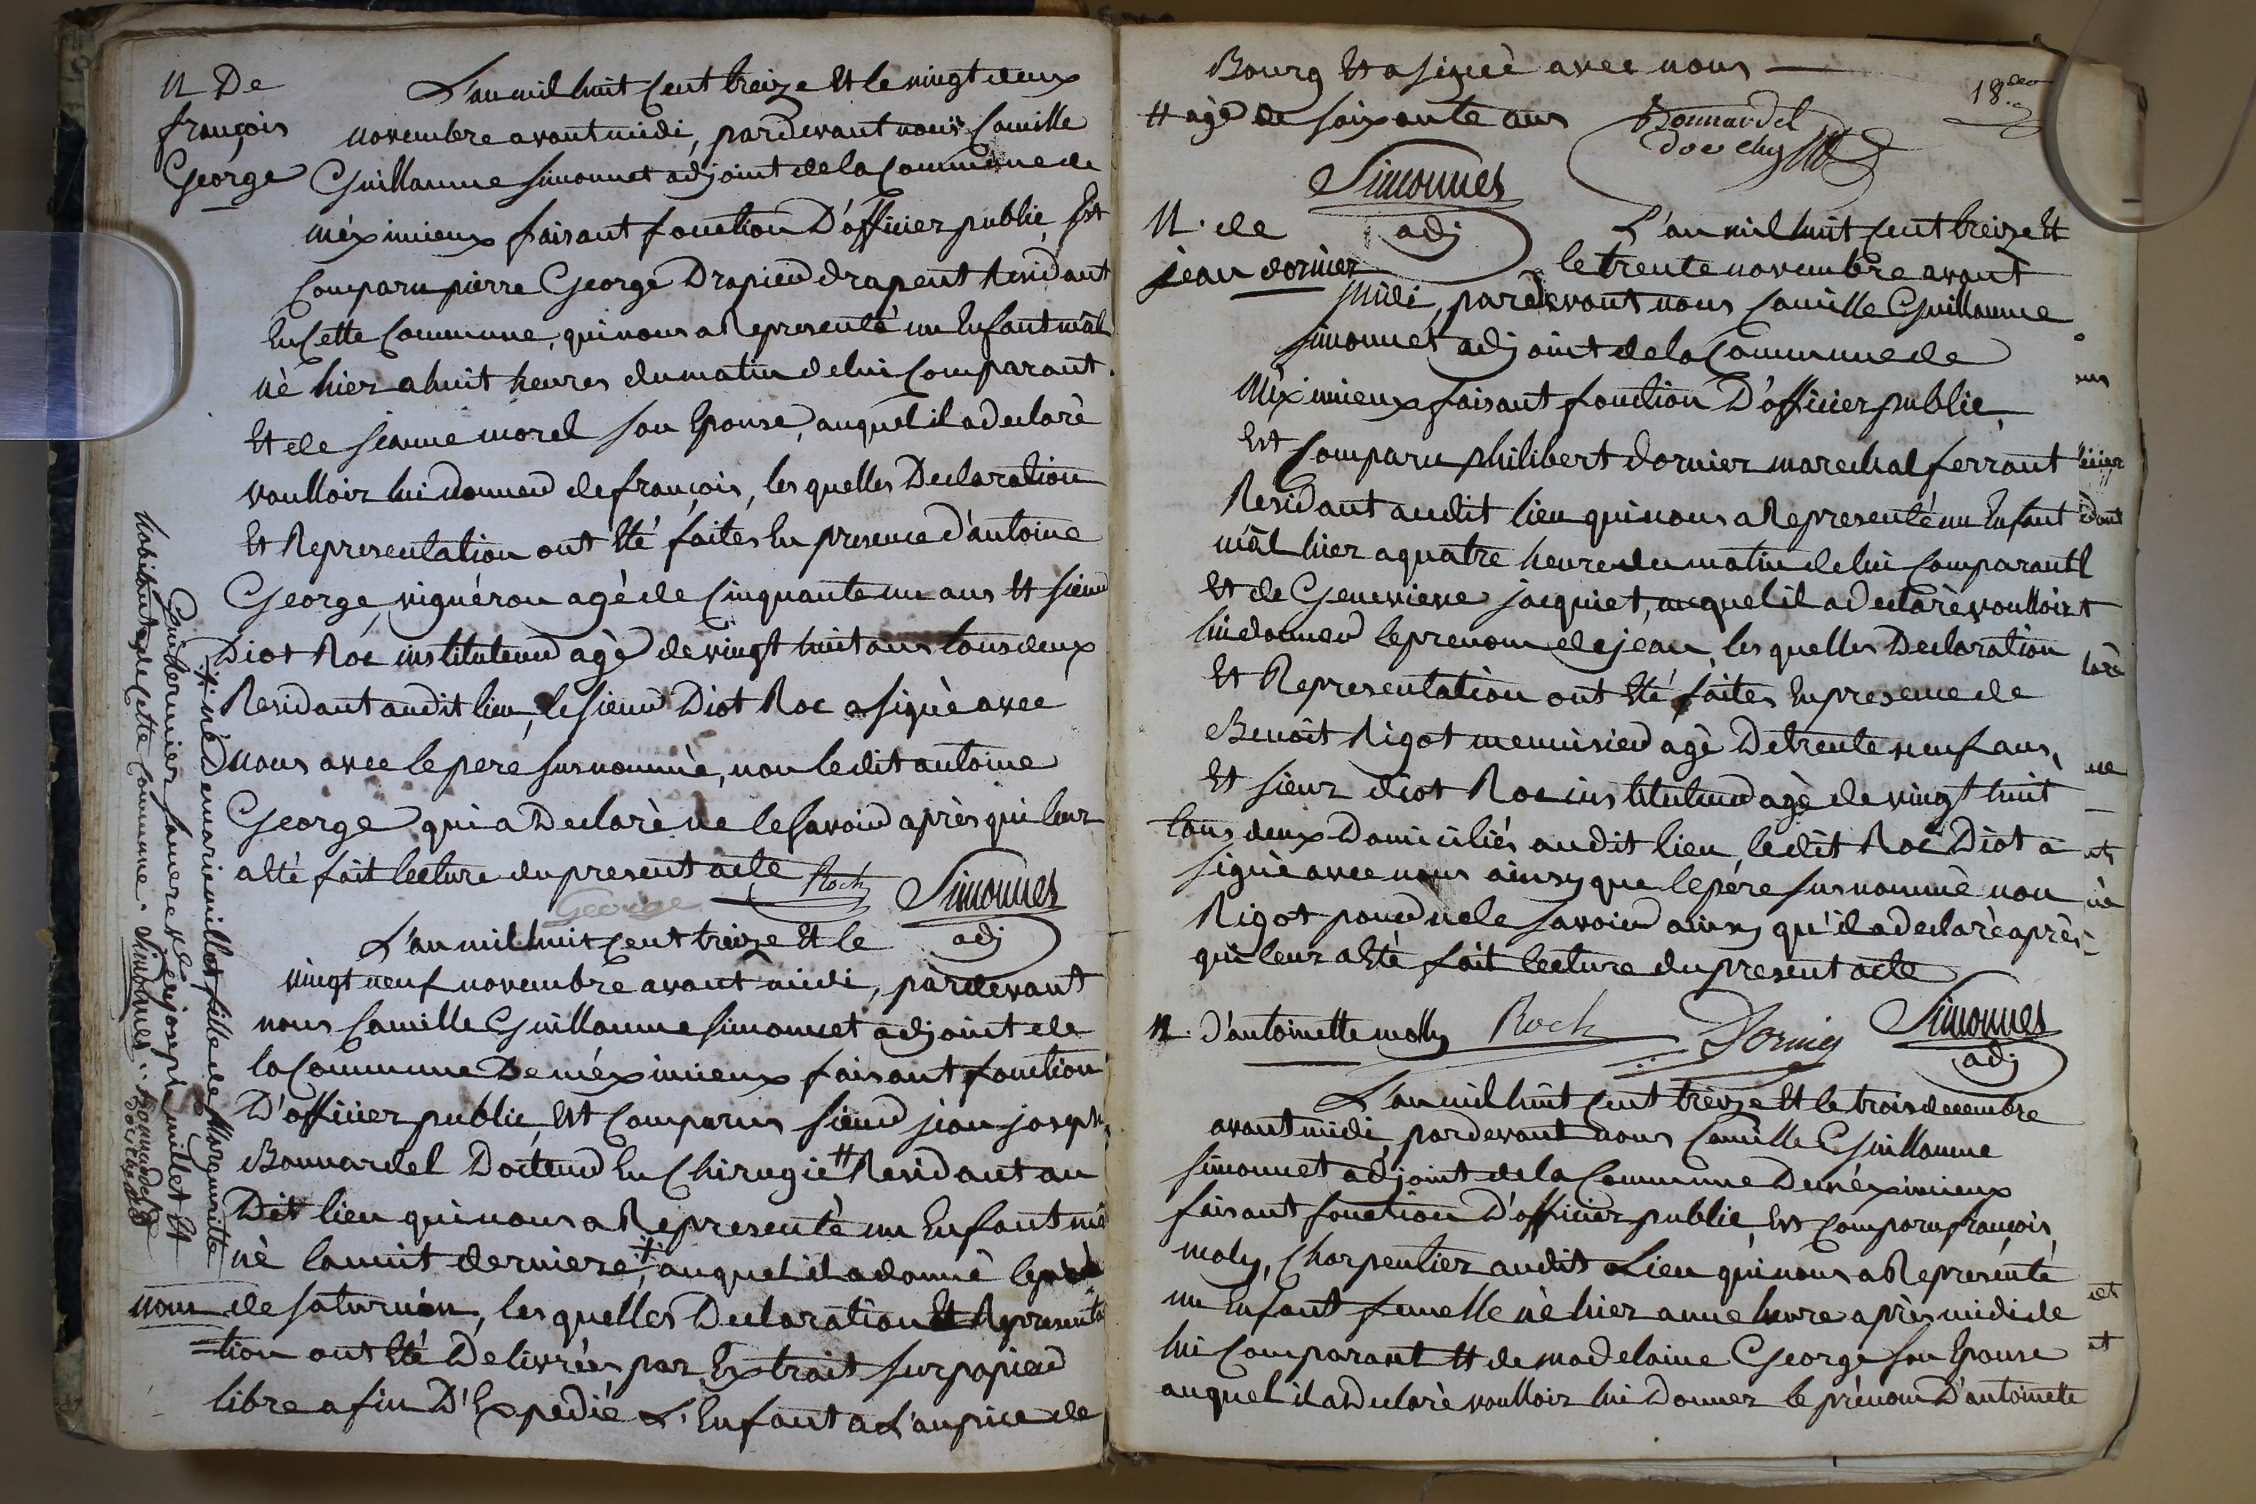 N De
françois
George
L'an mil huit Cent treize Et le vingt deux
novembre avant midi, pardevant nous Camille
Guillaume simonnet adjoint de la Commune de
méximieux faisant fonction D'officier public, Est
Comparu pierre George Drapieu drapent Residant
En Cette Commune, qui nous a Representé un Enfant mâl
nè hier a huit heures du matin de lui Comparant.
Et de jeanne morel son Epouse, auquel il a declarè
voulloir lui donner de françois, les quelles Declaration
Et Representation ont Eté faites En presence d'antoine
George, vignéron agè de Cinquante un ans Et sieur
Diot Roc instituteur agè de vingt huit ans tous deux
Residant audit lieu, le sieur Diot Roc a signè avec
nous avec le pere susnommè, non le dit antoine
George qui a Declarè ne le savoir après qui leur
a Eté fait lecture du present acte
George Roch Simonnet
adj
L'an mil huit Cent treize Et le
vingt neuf novembre avant midi, pardevant
nous Camille Guillaume simonnet adjoint de
la Commune De méximieux faisant fonction
D'officier public, Est Comparus sieur jean joseph
Bonnardel Docteur En Chirugie # Residant au
Dit lieu qui nous a Representè un Enfant mâ
nè la nuit derniere, auquel il a donnè le pré
nom de saturnin, les quelles Declaration Et Representa
=tion ont Eté Delivrées par Extrait sur papier
libre afin D'Expedié L'Enfant a L'auspice de
# né De marie millet fille de Marguerite
Guillermier, sameres, et de joseph millet Et
habitante de Cette Commune. Simonnet Bonnardel
doct chg
Bourg Et a signè avec nous
18.
# agè de soixante ans
Bonnardel
doct chg
Simonnet
adj
N. de
jean dornier
L'an mil huit Cent treize Et
le trente novembre avant
midi, pardevant nous Camille Guillaume
simonnet adjoint de la Commune de
Méximieux faisant fonction D'officier public,
Est Comparu philibert dornier marechal ferrant
Residant audit lieu qui nous a Representé un Enfant
mâl hier a quatre heure du matin de lui Comparant
Et de Genevieve jacquiet, auquel il a declarè voulloir
lui donner le prenom de jean, les quelles Declaration
Et Representation ont Eté faites En presence de
Benoit Rigot menuisieu agè De trente neuf ans,
Et sieur diot Roc instituteur agè de vingt huit
tous deux Domiciliés audit lieu, le dit Roc Diot a
signè avec nous ainsy que le pére susnommè non
Rigot pour ne le savoir ainsy qu'il a declarè après
qui leur a Eté fait lecture du present acte
N. d'antoinette moly Roch Dornier Simonnet
adj
L'an mil huit Cent treize Et le trois decembre
avant midi, pardevant nous Camille Guillaume
simonnet adjoint de la Commune De méximieux
faisant fonction D'officier public, Est Comparu françois
moly, Charpentier audit Lieu qui nous a Représénté
un Enfant femelle nè hier a une heure après midi de
lui Comparant Et de madelaine George son Epouse
auquel il a Declarè voulloir lui Donner le prénom D'antoinete